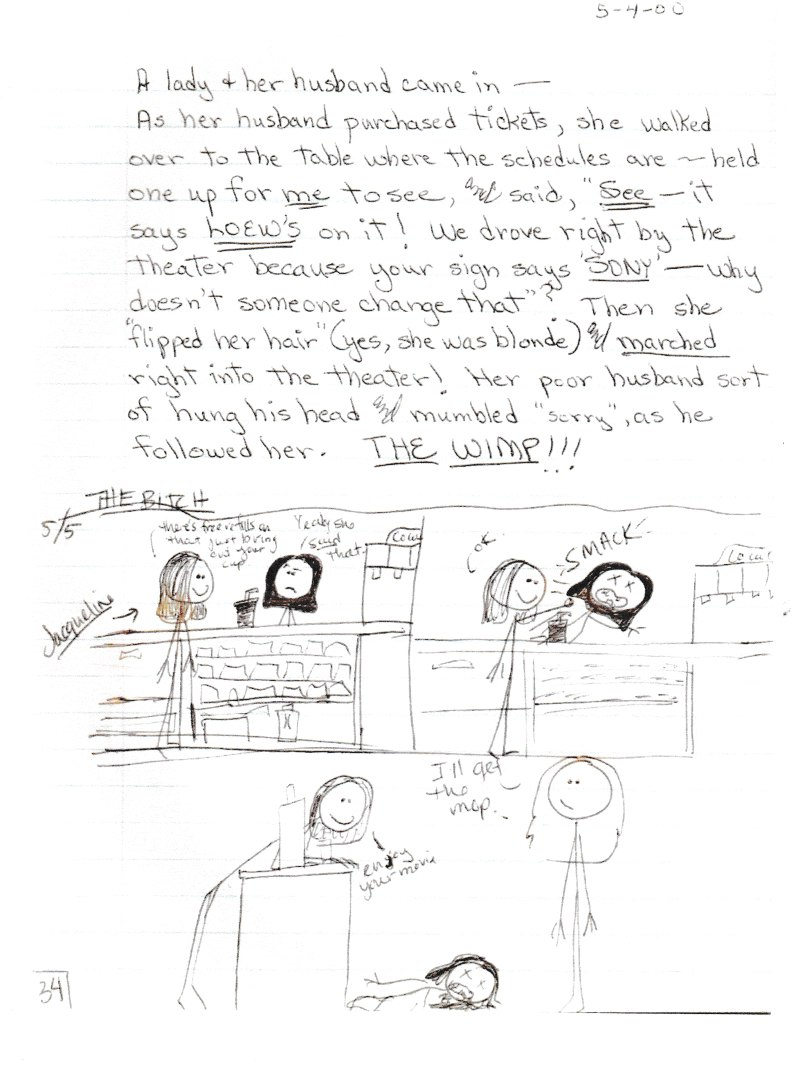 5-4-00
A lady & her husband came in —
As her husband purchased tickets, she walked
over to the table where the schedules are ~ held
one up for me to see, and said, "See — it
says LOEW'S on it! We drove right by the
theater because your sign says 'SONY' — why
doesn't someone change that"? Then she
"flipped her hair" (yes, she was blonde) and marched
right into the theater! Her poor husband sort
of hung his head and mumbled "sorry", as he
followed her. THE WIMP!!!
THE BITCH
5/5
there's free refills on
that just bring
out your
cup
Yeah, she
said
that.
Jacqueline
OK
SMACK
I'll get
the
mop.
enjoy
your movie
34